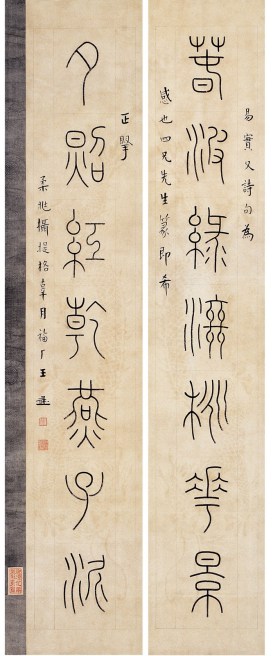 春波綠漲桃華景
易實父詩句為
感也四兄先生篆即希
正擘
夕照紅乾燕子泥
柔兆攝提格辜月福厂王禔